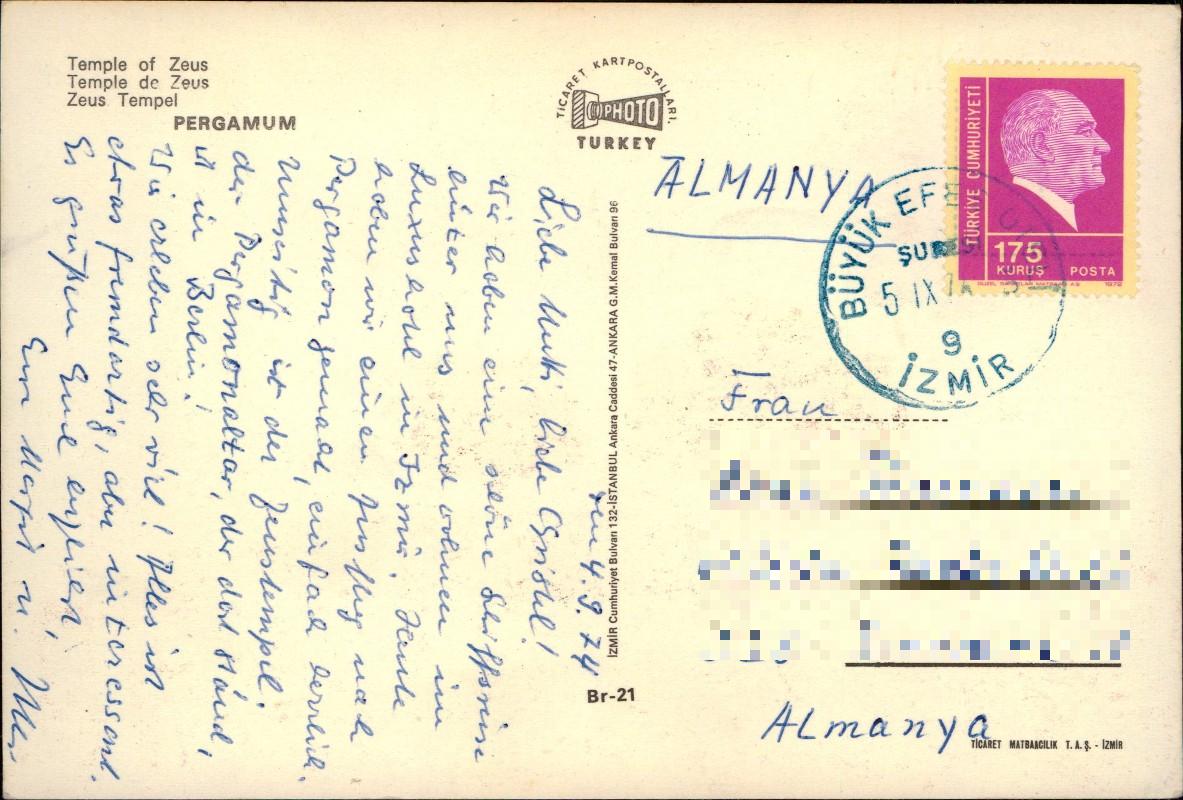 Temple of Zeus
Temple de Zeus
Zeus Tempel
PERGAMUM
TİCARET KARTPOSTALLARI.
PHOTO
TURKEY
den 4.9.74
Liebe Mutti, liebe Christel!
Wir haben eine schöne Schiffsreise
hinter uns und wohnen im
Luxushotel in Izmir. Heute
haben wir einen Ausflug nach
Pergamon gemacht, einfach herrlich.
Umseitig ist der Zeustempel.
der Pergamonaltar, der dort stand,
ist in Berlin!
Wir erleben sehr viel! Alles ist
etwas fremdartig, aber interessant.
Es grüßen Euch herzlichst,
Eure u.
İZMİR Cumhuriyet Bulvarı 132-İSTANBUL Ankara Caddesi 47-ANKARA G.M.Kemal Bulvarı 96
Br-21
ALMANYA
TÜRKİYE CUMHURİYETİ
175
KURUŞ
POSTA
1972
BÜYÜK EFES
5 IX
9
İZMİR
Frau
Almanya
TİCARET MATBAACILIK T.A.Ş. - İZMİR